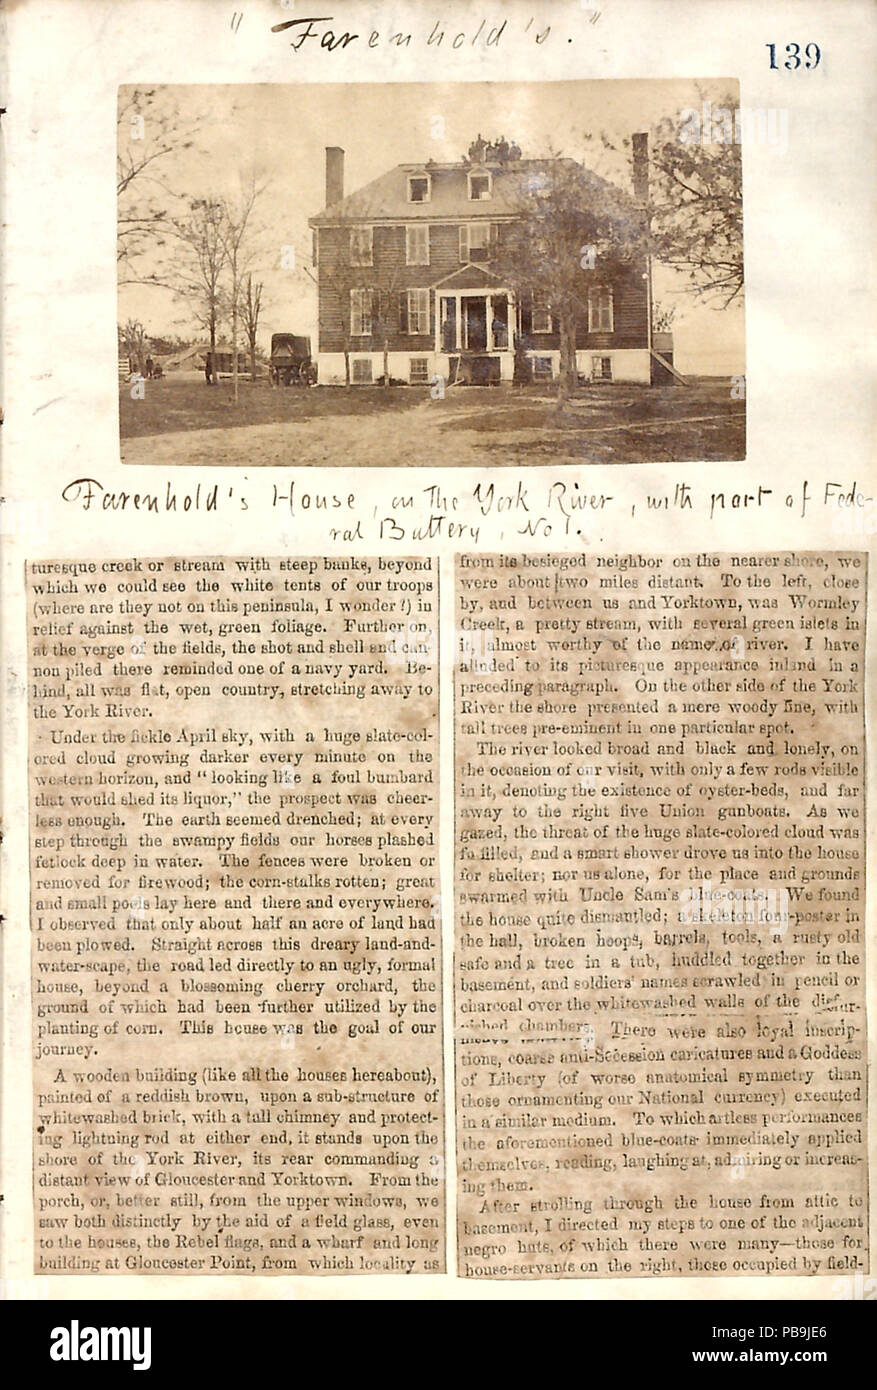 " Farenhold's. "
139
Farenhold's House, on the York River, with part of Fede-
ral Battery, No 1.
turesque creek or stream with steep banks, beyond
which we could see the white tents of our troops
(where are they not on this peninsula, I wonder?) in
relief against the wet, green foliage. Further on,
at the verge of the fields, the shot and shell and can-
non piled there reminded one of a navy yard. Be-
hind, all was flat, open country, stretching away to
the York River.
Under the fickle April sky, with a huge slate-col-
ored cloud growing darker every minute on the
western horizon, and "looking like a foul bumbard
that would shed its liquor," the prospect was cheer-
less enough. The earth seemed drenched; at every
step through the swampy fields our horses plashed
fetlock deep in water. The fences were broken or
removed for firewood; the corn-stalks rotten; great
and small pools lay here and there and everywhere.
I observed that only about half an acre of land had
been plowed. Straight across this dreary land-and-
water-scape, the road led directly to an ugly, formal
house, beyond a blossoming cherry orchard, the
ground of which had been further utilized by the
planting of corn. This house was the goal of our
journey.
A wooden building (like all the houses hereabout),
painted of a reddish brown, upon a sub-structure of
whitewashed brick, with a tall chimney and protect-
ing lightning rod at either end, it stands upon the
shore of the York River, its rear commanding a
distant view of Gloucester and Yorktown. From the
porch, or, better still, from the upper windows, we
saw both distinctly by the aid of a field glass, even
to the houses, the Rebel flags, and a wharf and long
building at Gloucester Point, from which locality as
from its besieged neighbor on the nearer shore, we
were about two miles distant. To the left, close
by, and between us and Yorktown, was Wormley
Creek, a pretty stream, with several green islets in
it, almost worthy of the name of river. I have
alluded to its picturesque appearance inland in a
preceding paragraph. On the other side of the York
River the shore presented a mere woody line, with
tall trees pre-eminent in one particular spot.
The river looked broad and black and lonely, on
the occasion of our visit, with only a few rods visible
in it, denoting the existence of oyster-beds, and far
away to the right five Union gunboats. As we
gazed, the threat of the huge slate-colored cloud was
fulfilled, and a smart shower drove us into the house
for shelter; nor us alone, for the place and grounds
swarmed with Uncle Sam's blue-coats. We found
the house quite dismantled; a skeleton four-poster in
the hall, broken hoops, barrels, tools, a rusty old
safe and a tree in a tub, huddled together in the
basement, and soldiers' names scrawled in pencil or
charcoal over the whitewashed walls of the disfur-
nished chambers. There were also loyal inscrip-
tions, coarse anti-Secession caricatures and a Goddess
of Liberty (of worse anatomical symmetry than
those ornamenting our National currency) executed
in a similar medium. To which artless performances
the aforementioned blue-coats immediately applied
themselves, reading, laughing at, admiring or increas-
ing them.
After strolling through the house from attic to
basement, I directed my steps to one of the adjacent
negro huts, of which there were many—those for
house-servants on the right, those occupied by field-
alamy
alamy stock photo
Image ID: PB9JE6
www.alamy.com